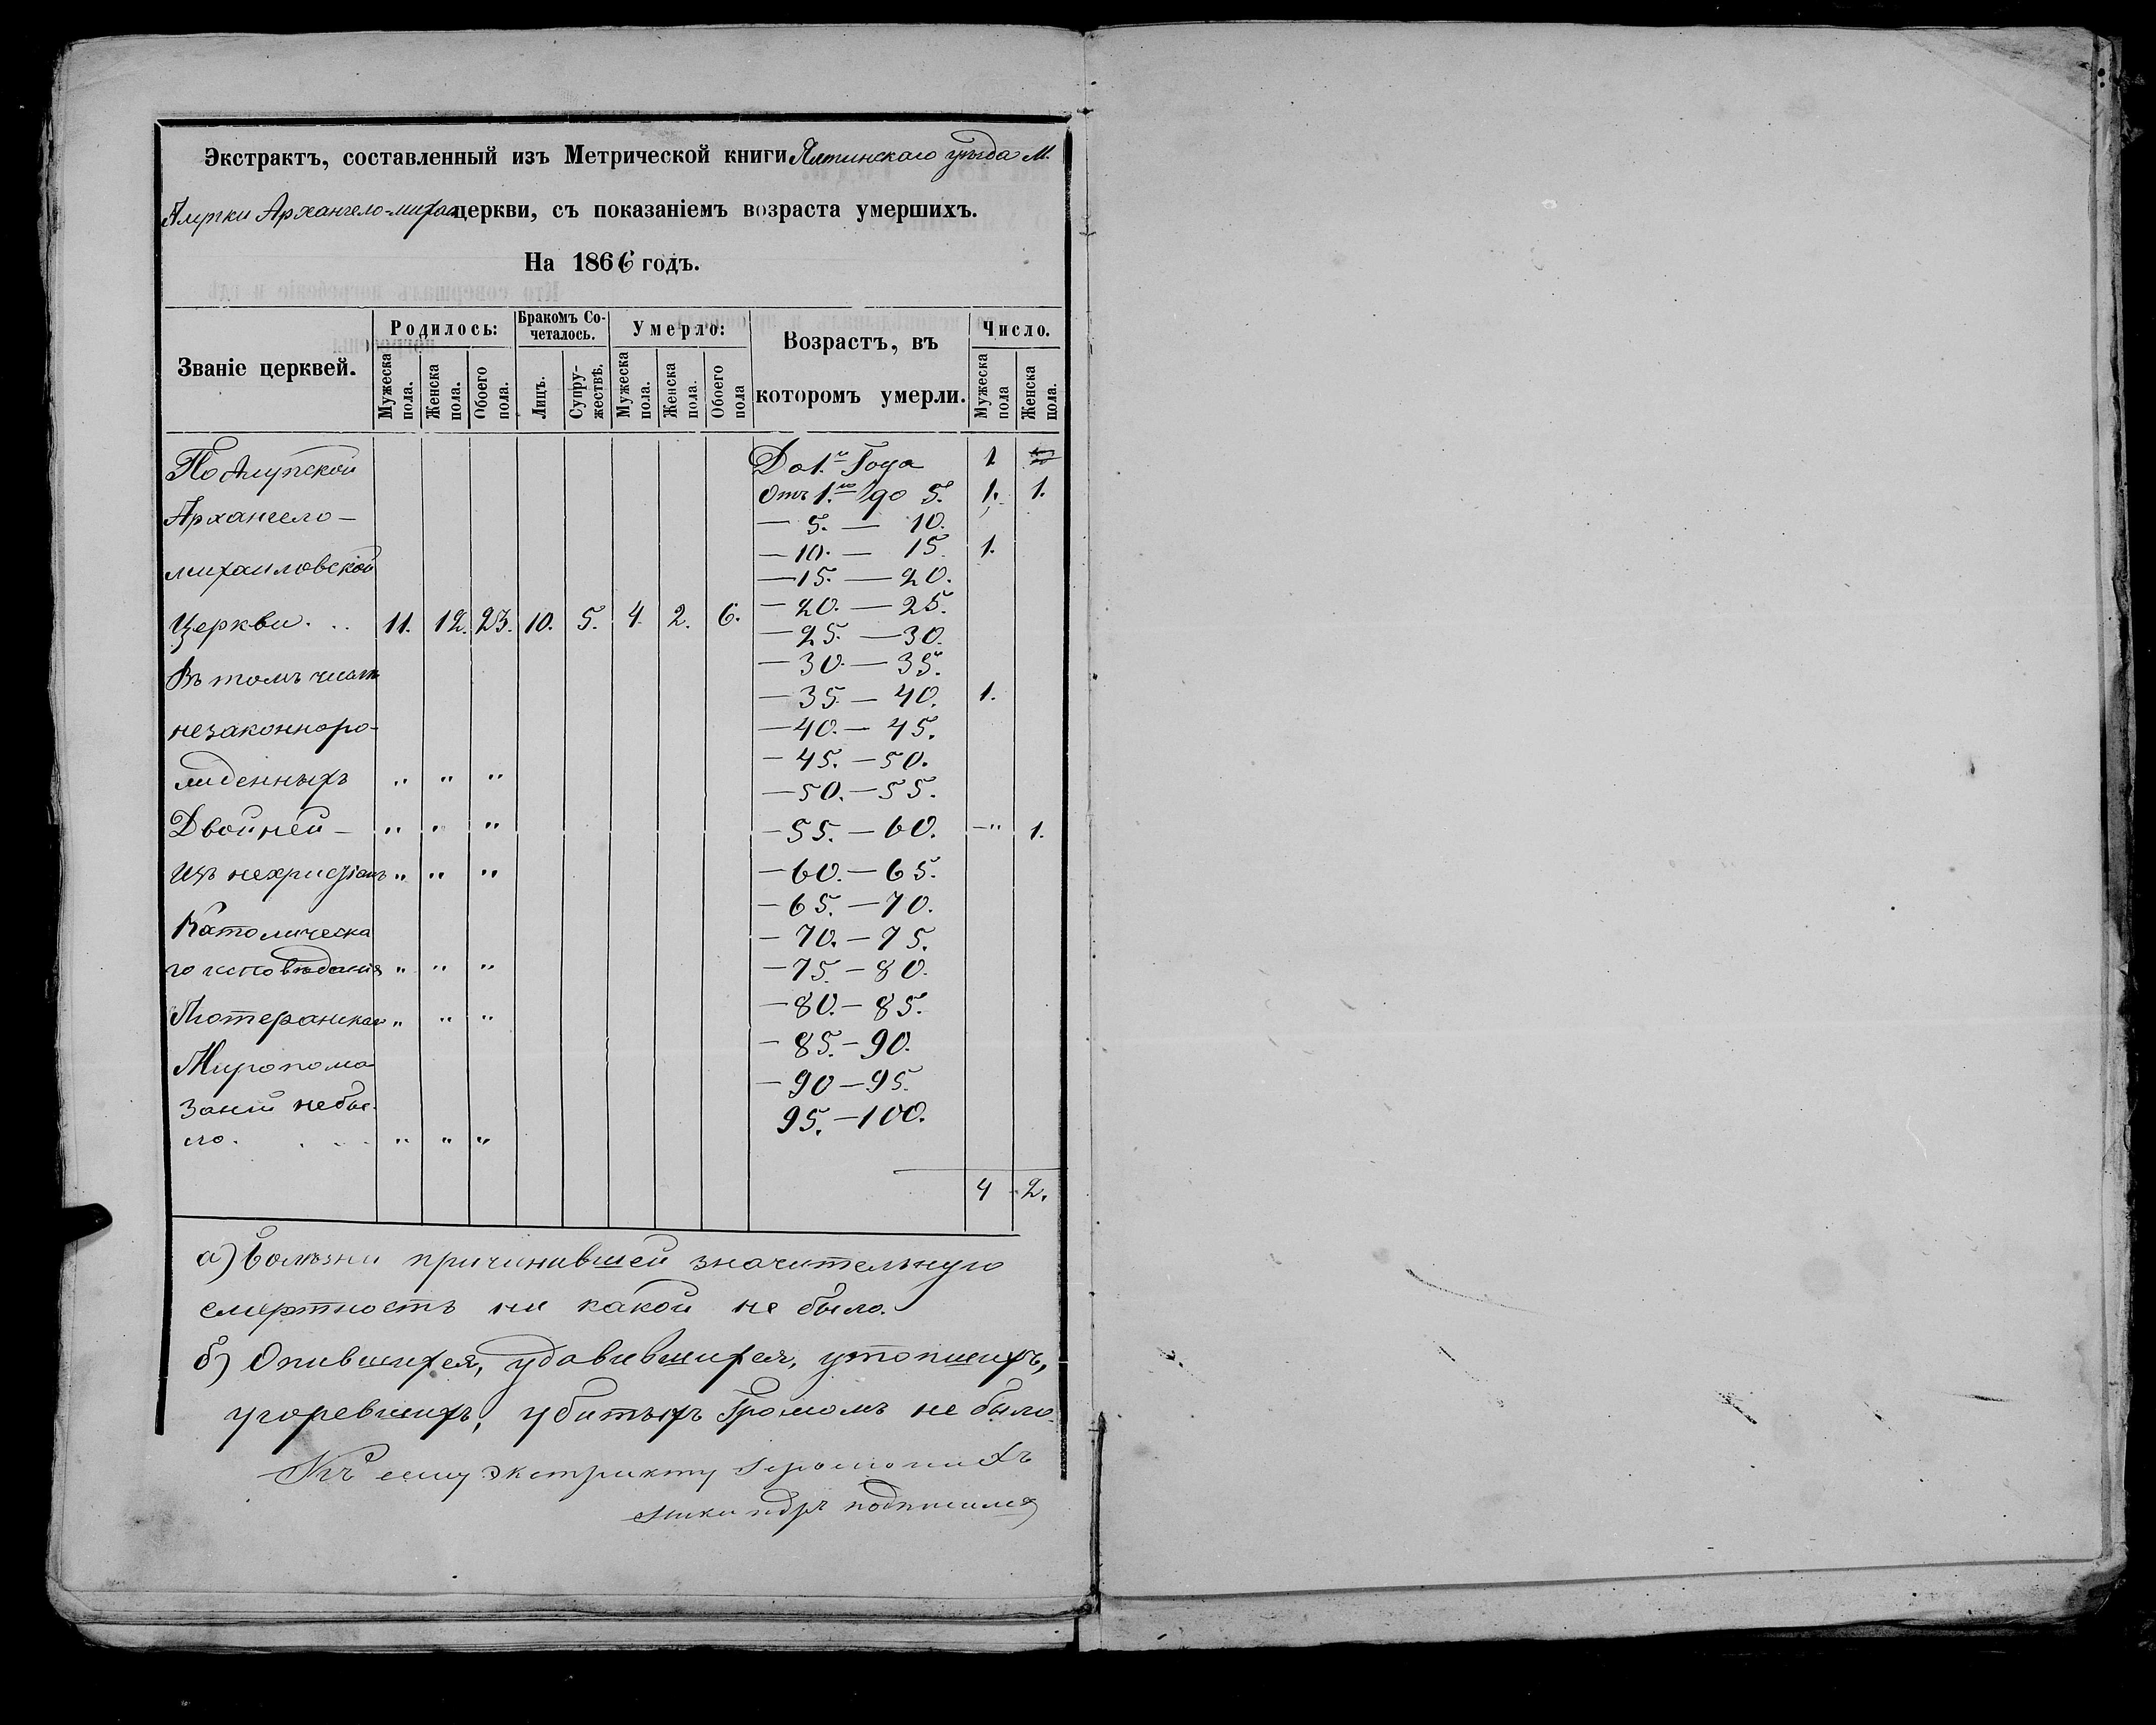 Экстрактъ, составленный изъ Метрической книги Ялтинскаго уѣзда М.
Алупки Архангело-миха церкви, съ показаніемъ возраста умершихъ.
На 1866 годъ.
Званіе церквей. Родилось: Бракомъ Со-четалось. Умерло: Возрастъ, въ которомъ умерли. Число.
Мужеска пола. Женска пола. Обоего пола. Лицъ. Супру-жествъ. Мужеска пола. Женска пола. Обоего пола Мужеска пола Женска пола.
По Алупской До 1.го Года 1
Отъ 1.го до 5. 1. 1.
Архангело- — 5. — 10.
— 10. — 15. 1.
михаиловской — 15. — 20.
Церкви. . . 11. 12. 23. 10. 5. 4. 2. 6. — 20. — 25.
— 25. — 30.
— 30. — 35.
Въ томъ числѣ — 35. — 40. 1.
незаконноро- — 40. — 45.
— 45. — 50.
жденныхъ " " " — 50. — 55.
Двойней — " " " — 55. — 60. —" 1.
Изъ нехристіанъ " " " — 60. — 65.
— 65. — 70.
Католическа — 70. — 75.
го исповѣданія " " " — 75. — 80.
Лютеранскаго " " " — 80. — 85.
— 85. — 90.
Миропома — 90 — 95.
заній небы- 95. — 100.
ло. . . . " " "
4 2.
а) Болѣзни причинившей значительную
смертность ни какой не было.
б) Опившихся, удавившихся, утопшихъ,
угоревшихъ, убитыхъ Громомъ не было.
Къ сему экстракту Іеромонахъ
подписался